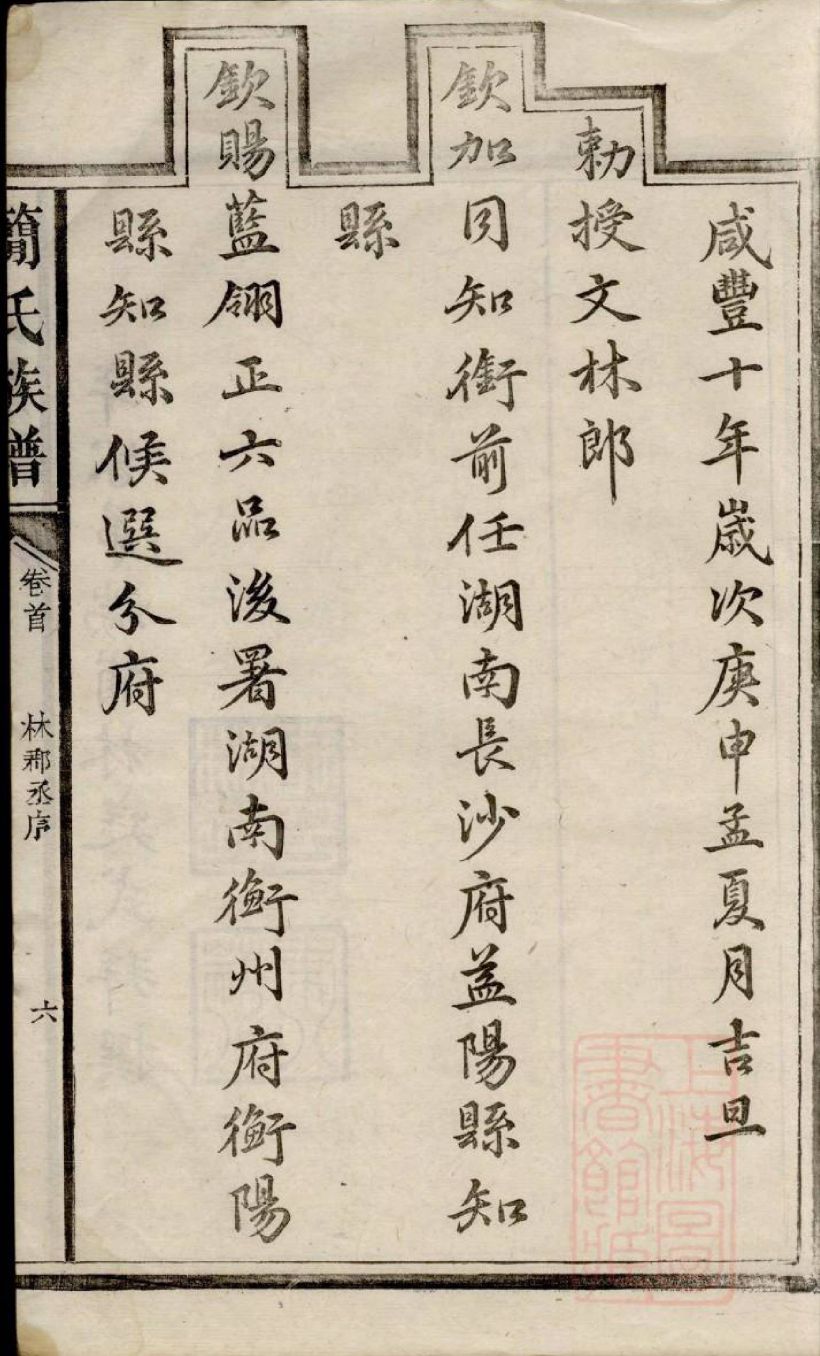 咸豐十年歲次庚申孟夏月吉旦
勅授文林郎
欽加同知銜前任湖南長沙府益陽縣知
縣
欽賜藍翎正六品後署湖南衡州府衡陽
縣知縣候選分府
簡氏族譜
卷首
林郡丞序
六
上海圖書館藏